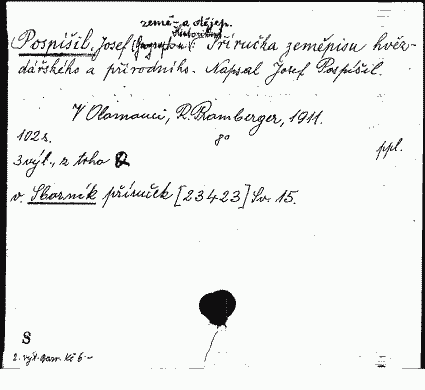 země- a dějep.
Pospíšil, Josef : Příručka zeměpisu hvěz-
dářského a přírodního. Napsal Josef Pospíšil.
V Olomouci, R. Promberger, 1911.
102 s. 8°
ppl.
3 výl., z toho
v. Sborník příruček [23423] Sv. 15.
S
2. výt. Kč 6-